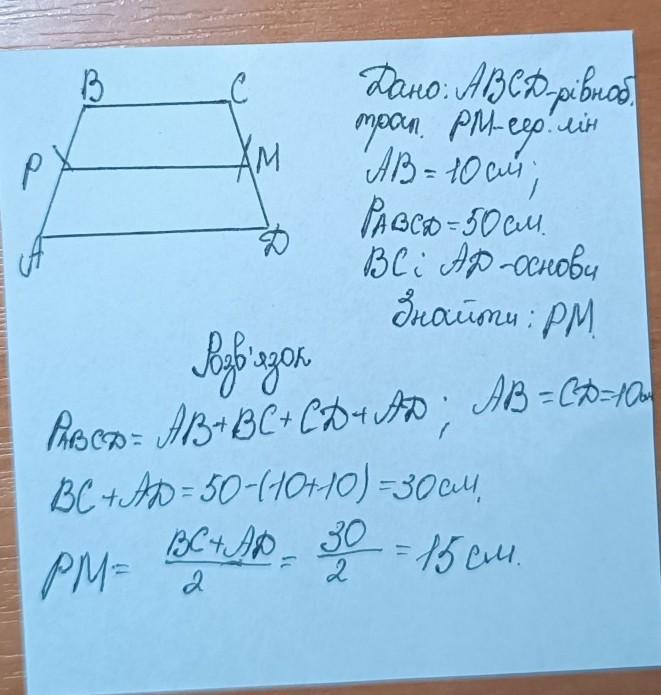 B C
Дано: ABCD-рівноб.
трап. PM-сер. лін
P M
AB = 10 см;
P ABCD = 50 см.
A D
BC і AD - основи
Знайти: PM.
Розв'язок
P ABCD = AB + BC + CD + AD; AB = CD = 10 см
BC + AD = 50 - (10 + 10) = 30 см.
PM = BC + AD / 2 = 30 / 2 = 15 см.